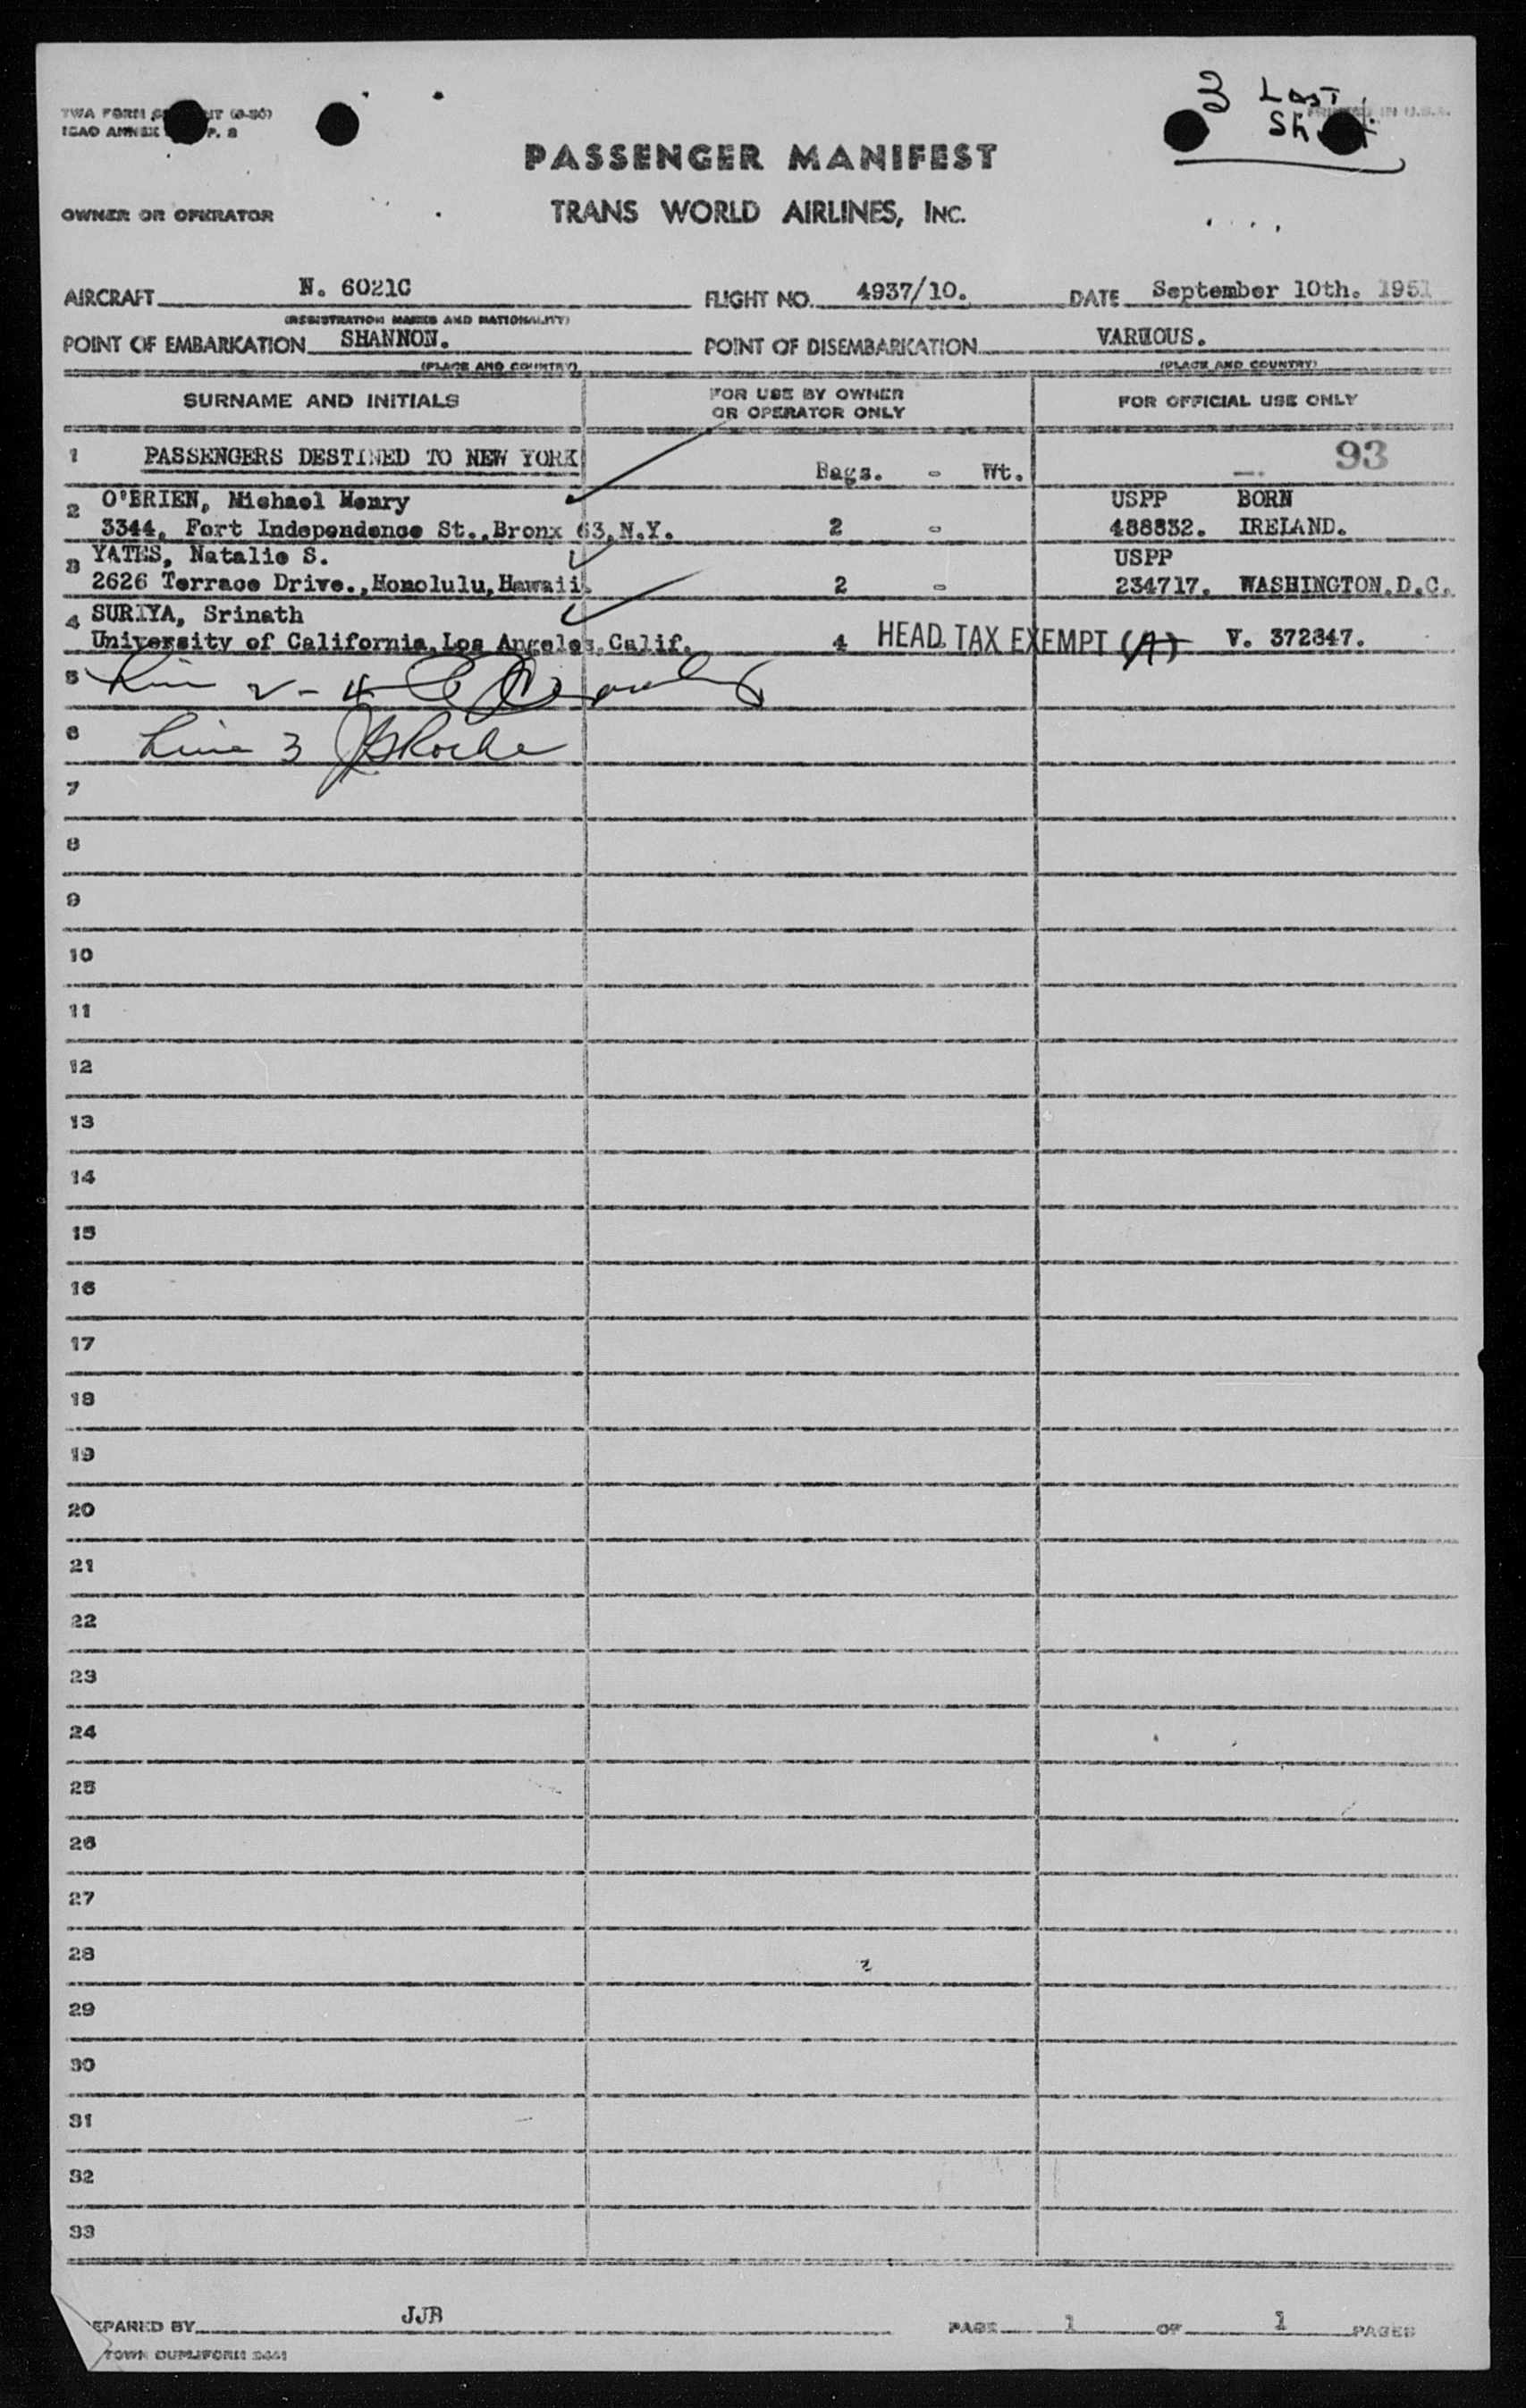 TWA FORM
ICAO ANNEX P. 2
3 Last
PRINTED IN U.S.A.
PASSENGER MANIFEST
OWNER OR OPERATOR
TRANS WORLD AIRLINES, INC.
AIRCRAFT N. 6021C FLIGHT NO. 4937/10. DATE September 10th. 1951
(REGISTRATION MARKS AND NATIONALITY)
POINT OF EMBARKATION SHANNON. POINT OF DISEMBARKATION VARIOUS.
(PLACE AND COUNTRY) (PLACE AND COUNTRY)
SURNAME AND INITIALS FOR USE BY OWNER OR OPERATOR ONLY FOR OFFICIAL USE ONLY
1 PASSENGERS DESTINED TO NEW YORK Bags. - Wt. 93
2 O'BRIEN, Michael Henry USPP BORN
3344, Fort Independence St.,Bronx 63,N.Y. 2 - 488832. IRELAND.
3 YATES, Natalie S. USPP
2626 Terrace Drive.,Honolulu,Hawaii. 2 - 234717. WASHINGTON.D.C.
4 SURIYA, Srinath
University of California,Los Angeles,Calif. 4 HEAD TAX EXEMPT (A) V. 372347.
5 Line 2-4
6 Line 3 Roche
7
8
9
10
11
12
13
14
15
16
17
18
19
20
21
22
23
24
25
26
27
28
29
30
31
32
33
EPARED BY JJB PAGE 1 OF 1 PAGES
TOWN DUPLIFORM